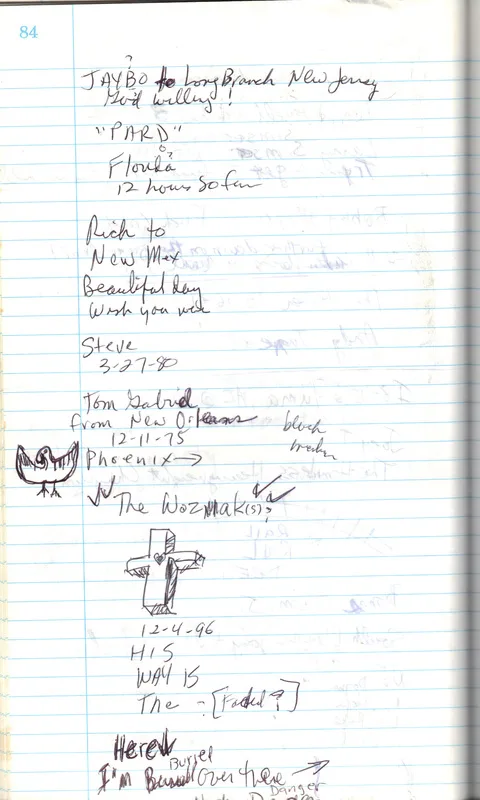 84
?
JAYBO to Long Branch New Jersey
God willing!
"PARD"
Florida
12 hours so far
Rich to
New Mex
Beautiful day
Wish you were
Steve
3-27-80
Tom Gabriel
from New Orleans
12-11-75
black
Phoenix →
The Wozmak(s)?
12-4-96
HIS
WAY IS
The - [Faded?]
Here
Buried
I'm over there →
Danger